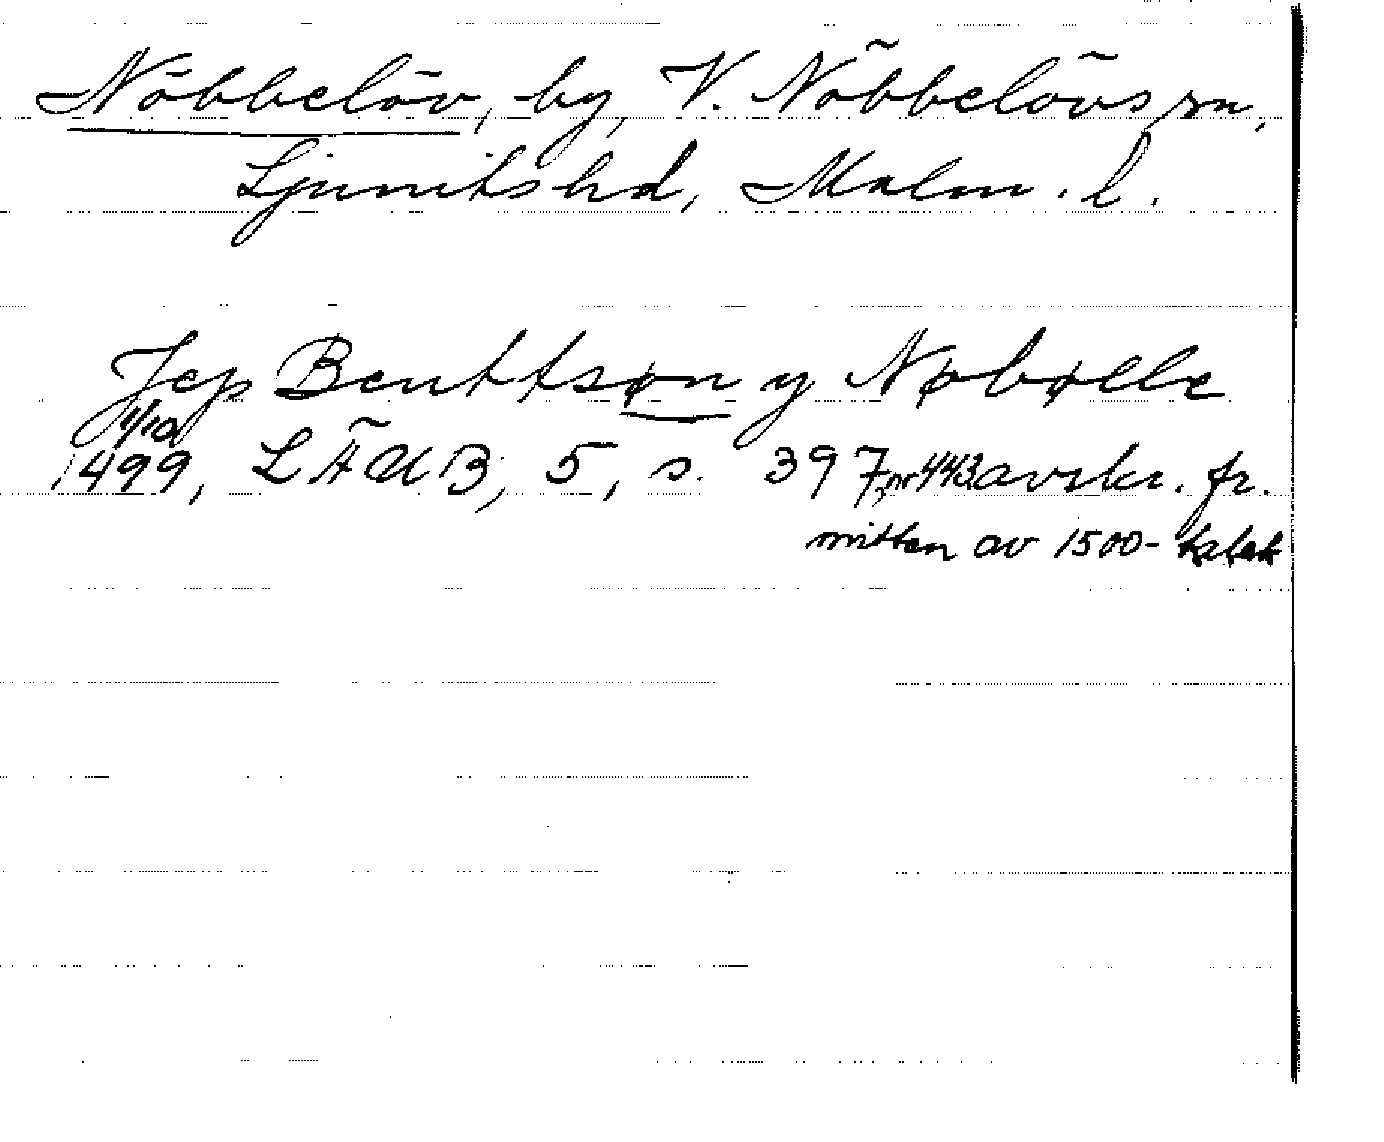 Nöbbelöv, by, V. Nöbbelövs sn,
Ljunits hd, Malm. l.
Jep Benttsøn y Nøbølle
1/10
1499, LÄUB, 5, s. 397, nr 443 avskr. fr.
mitten av 1500-talet